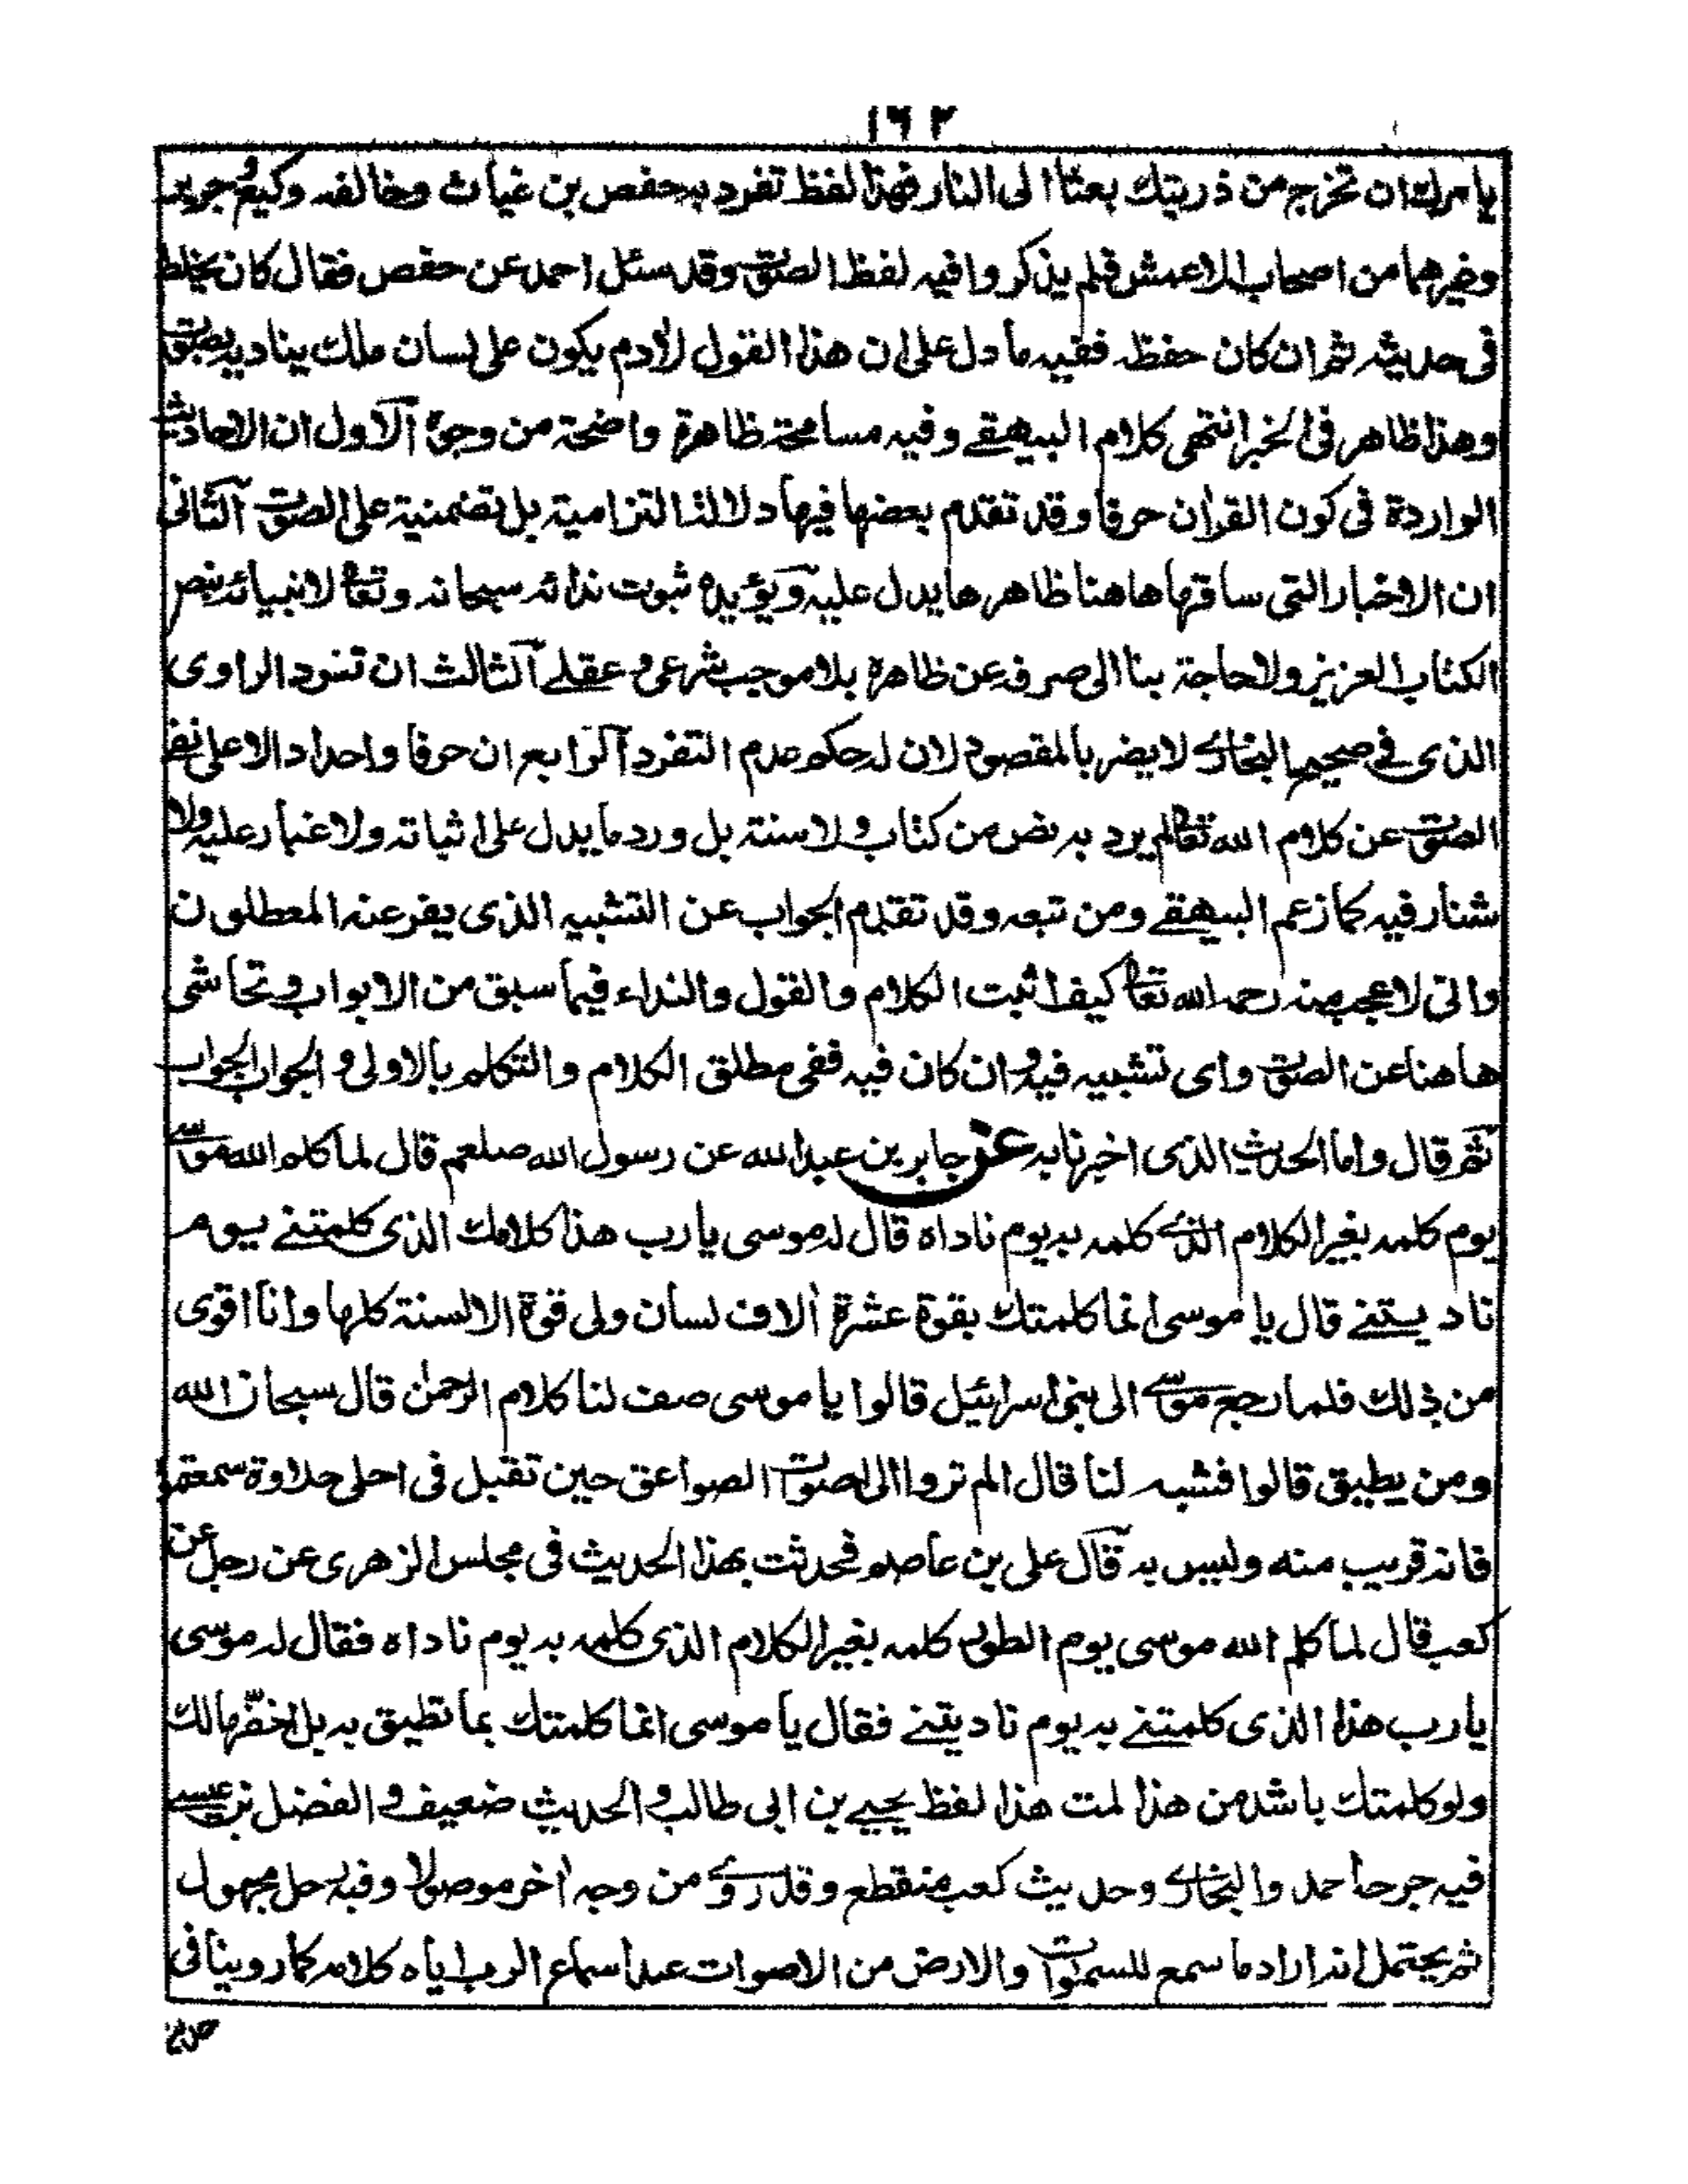 ١٦٢
يامرك ان تخرج من ذريتك بعثا الى النار فهذا لفظ تفرد به حفص بن غياث وخالفه وكيع وجرير
وغيرهما من اصحاب الاعمش فلم يذكروا فيه لفظ الصوت وقد سئل احمد عن حفص فقال كان يخلط
فى حديثه ثم ان كان حفظه ففيه ما دل على ان هذا القول لآدم يكون على لسان ملك يناديه بصوت
وهذا ظاهر فى الخبر انتهى كلام البيهقے وفيه مسامحة ظاهرة واضحة من وجوه آلاول ان الاحاديث
الواردة فى كون القرآن حرفا وقد تقدم بعضها فيها دلالة التزامية بل تضمنية على الصوت آلثانى
ان الاخبار التى ساقها هاهنا ظاهرها يدل عليه ويؤيده ثبوت ندائه سبحانه وتعا لانبيائه بنص
الكتاب العزيز ولا حاجة بنا الى صرفه عن ظاهره بلا موجب شرعى وعقلے آلثالث ان تفرد الراوى
الذى فى صحيح البخارے لا يضر بالمقصود لان له حكم عدم التفرد آلرابع ان حرفا واحدا دالا على نفى
الصوت عن كلام الله تعالم يرد به نص من كتاب ولا سنة بل ورد ما يدل على اثباته ولا غبار عليه ولا
شنار فيه كما زعم البيهقے ومن تبعه وقد تقدم الجواب عن التشبيه الذى يفر عنه المعطلون
وانى لاعجب منه رحمه الله تعا كيف اثبت الكلام والقول والنداء فيما سبق من الابواب وتحاشى
هاهنا عن الصوت واى تشبيه فيه وان كان فيه ففى مطلق الكلام والتكلم بالاولى و الجواب الجواب
ثم قال واما الحديث الذى اخبرنا به عن جابر بن عبد الله عن رسول الله صلعم قال لما كلم الله موسے
يوم كلمه بغير الكلام الذے كلمه به يوم ناداه قال له موسى يا رب هذا كلامك الذى كلمتنے يوم
ناديتنے قال يا موسى انما كلمتك بقوة عشرة آلاف لسان ولى قوة الالسنة كلها وانا اقوى
من ذلك فلما رجع موسے الى بنى اسرائيل قالوا يا موسى صف لنا كلام الرحمٰن قال سبحان الله
ومن يطيق قالوا فشبه لنا قال الم تروا الى اصوات الصواعق حين تقبل فى احلى حلاوة سمعتموه
فانه قريب منه وليس به قال على بن عاصم فحدثت بهذا الحديث فى مجلس الزهرى عن رجل عن
كعب قال لما كلم الله موسى يوم الطور كلمه بغير الكلام الذى كلمه به يوم ناداه فقال له موسى
يا رب هذا الذى كلمتنے به يوم ناديتنے فقال يا موسى انما كلمتك بما تطيق به بل اخفها لك
ولو كلمتك باشد من هذا لمت هذا لفظ يحيے بن ابى طالب و الحديث ضعيف و الفضل بن عيسے
فيه جرحا احمد والبخارے وحديث كعب منقطع وقد روے من وجه آخر موصولا وفيه رجل مجهول
ثم يحتمل انه اراد ما سمع للسموات والارض من الاصوات عند اسماع الرب اياه كلامه كما روينا فى